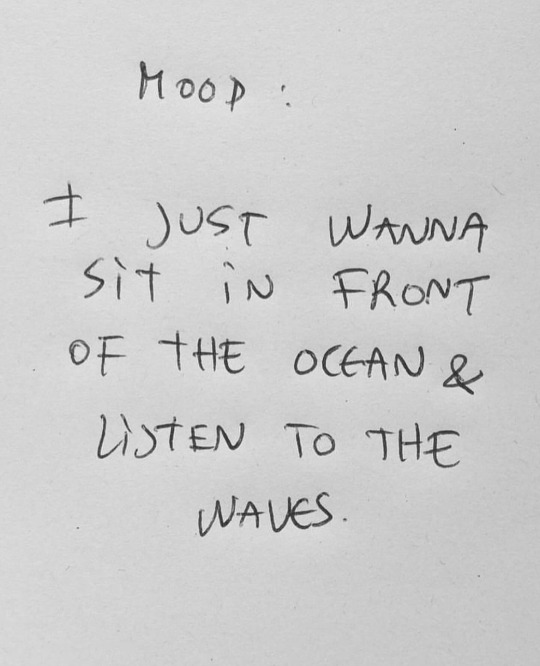 MOOD :
I JUST WANNA
Sit iN FRONT
OF tHE OCEAN &
LiSTEN TO THE
WAVES.